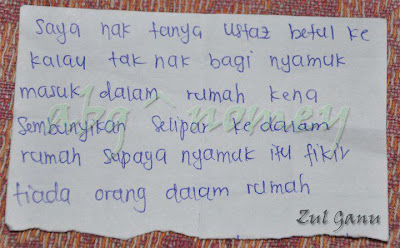 Saya nak tanya ustaz betul ke
kalau tak nak bagi nyamuk
masuk dalam rumah kena
sembunyikan selipar ke dalam
rumah supaya nyamuk itu fikir
tiada orang dalam rumah
Zul Ganu